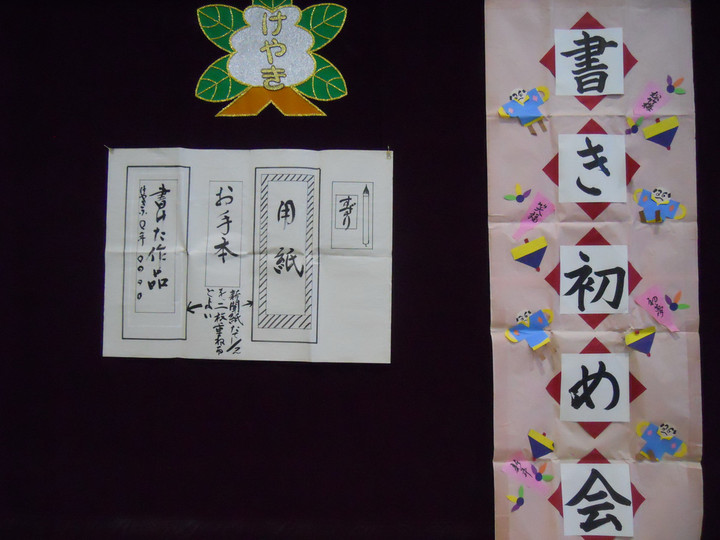 けやき
書き初め会
すずり
用紙
お手本
新聞紙など
を二枚重ねる
とよい
書けた作品